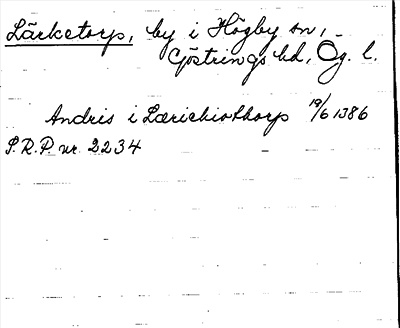 Lärketorp, by i Högby sn,
Göstrings hd, Ög. l.
Andris i Lærichiothorp 19/6 1386
S.R.P. nr 2234